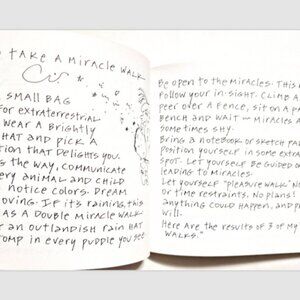 TAKE A MIRACLE WALK
SMALL BAG
FOR EXTRATERRESTRIAL
WEAR A BRIGHTLY
HAT AND PICK A
TION THAT DELIGHTS YOU.
THE WAY, COMMUNICATE
ERY ANIMAL AND CHILD
NOTICE COLORS. DREAM
MOVING. IF IT'S RAINING, THIS
AS A DOUBLE MIRACLE WALK.
AN OUTLANDISH RAIN HAT
OMP IN EVERY PUDDLE YOU SEE
Be open to the miracles. This
Follow your in-sight. Climb a
peer over a fence, sit on a p
Bench and wait — miracles a
sometimes shy.
Bring a notebook or sketch pa
Position yourself in some extra
spot. Let yourself Be guided
leading to miracles.
Let yourself "pleasure walk" N
or time restraints. No plans!
anything could happen, and p
will.
Here are the results of 3 of my
walks."